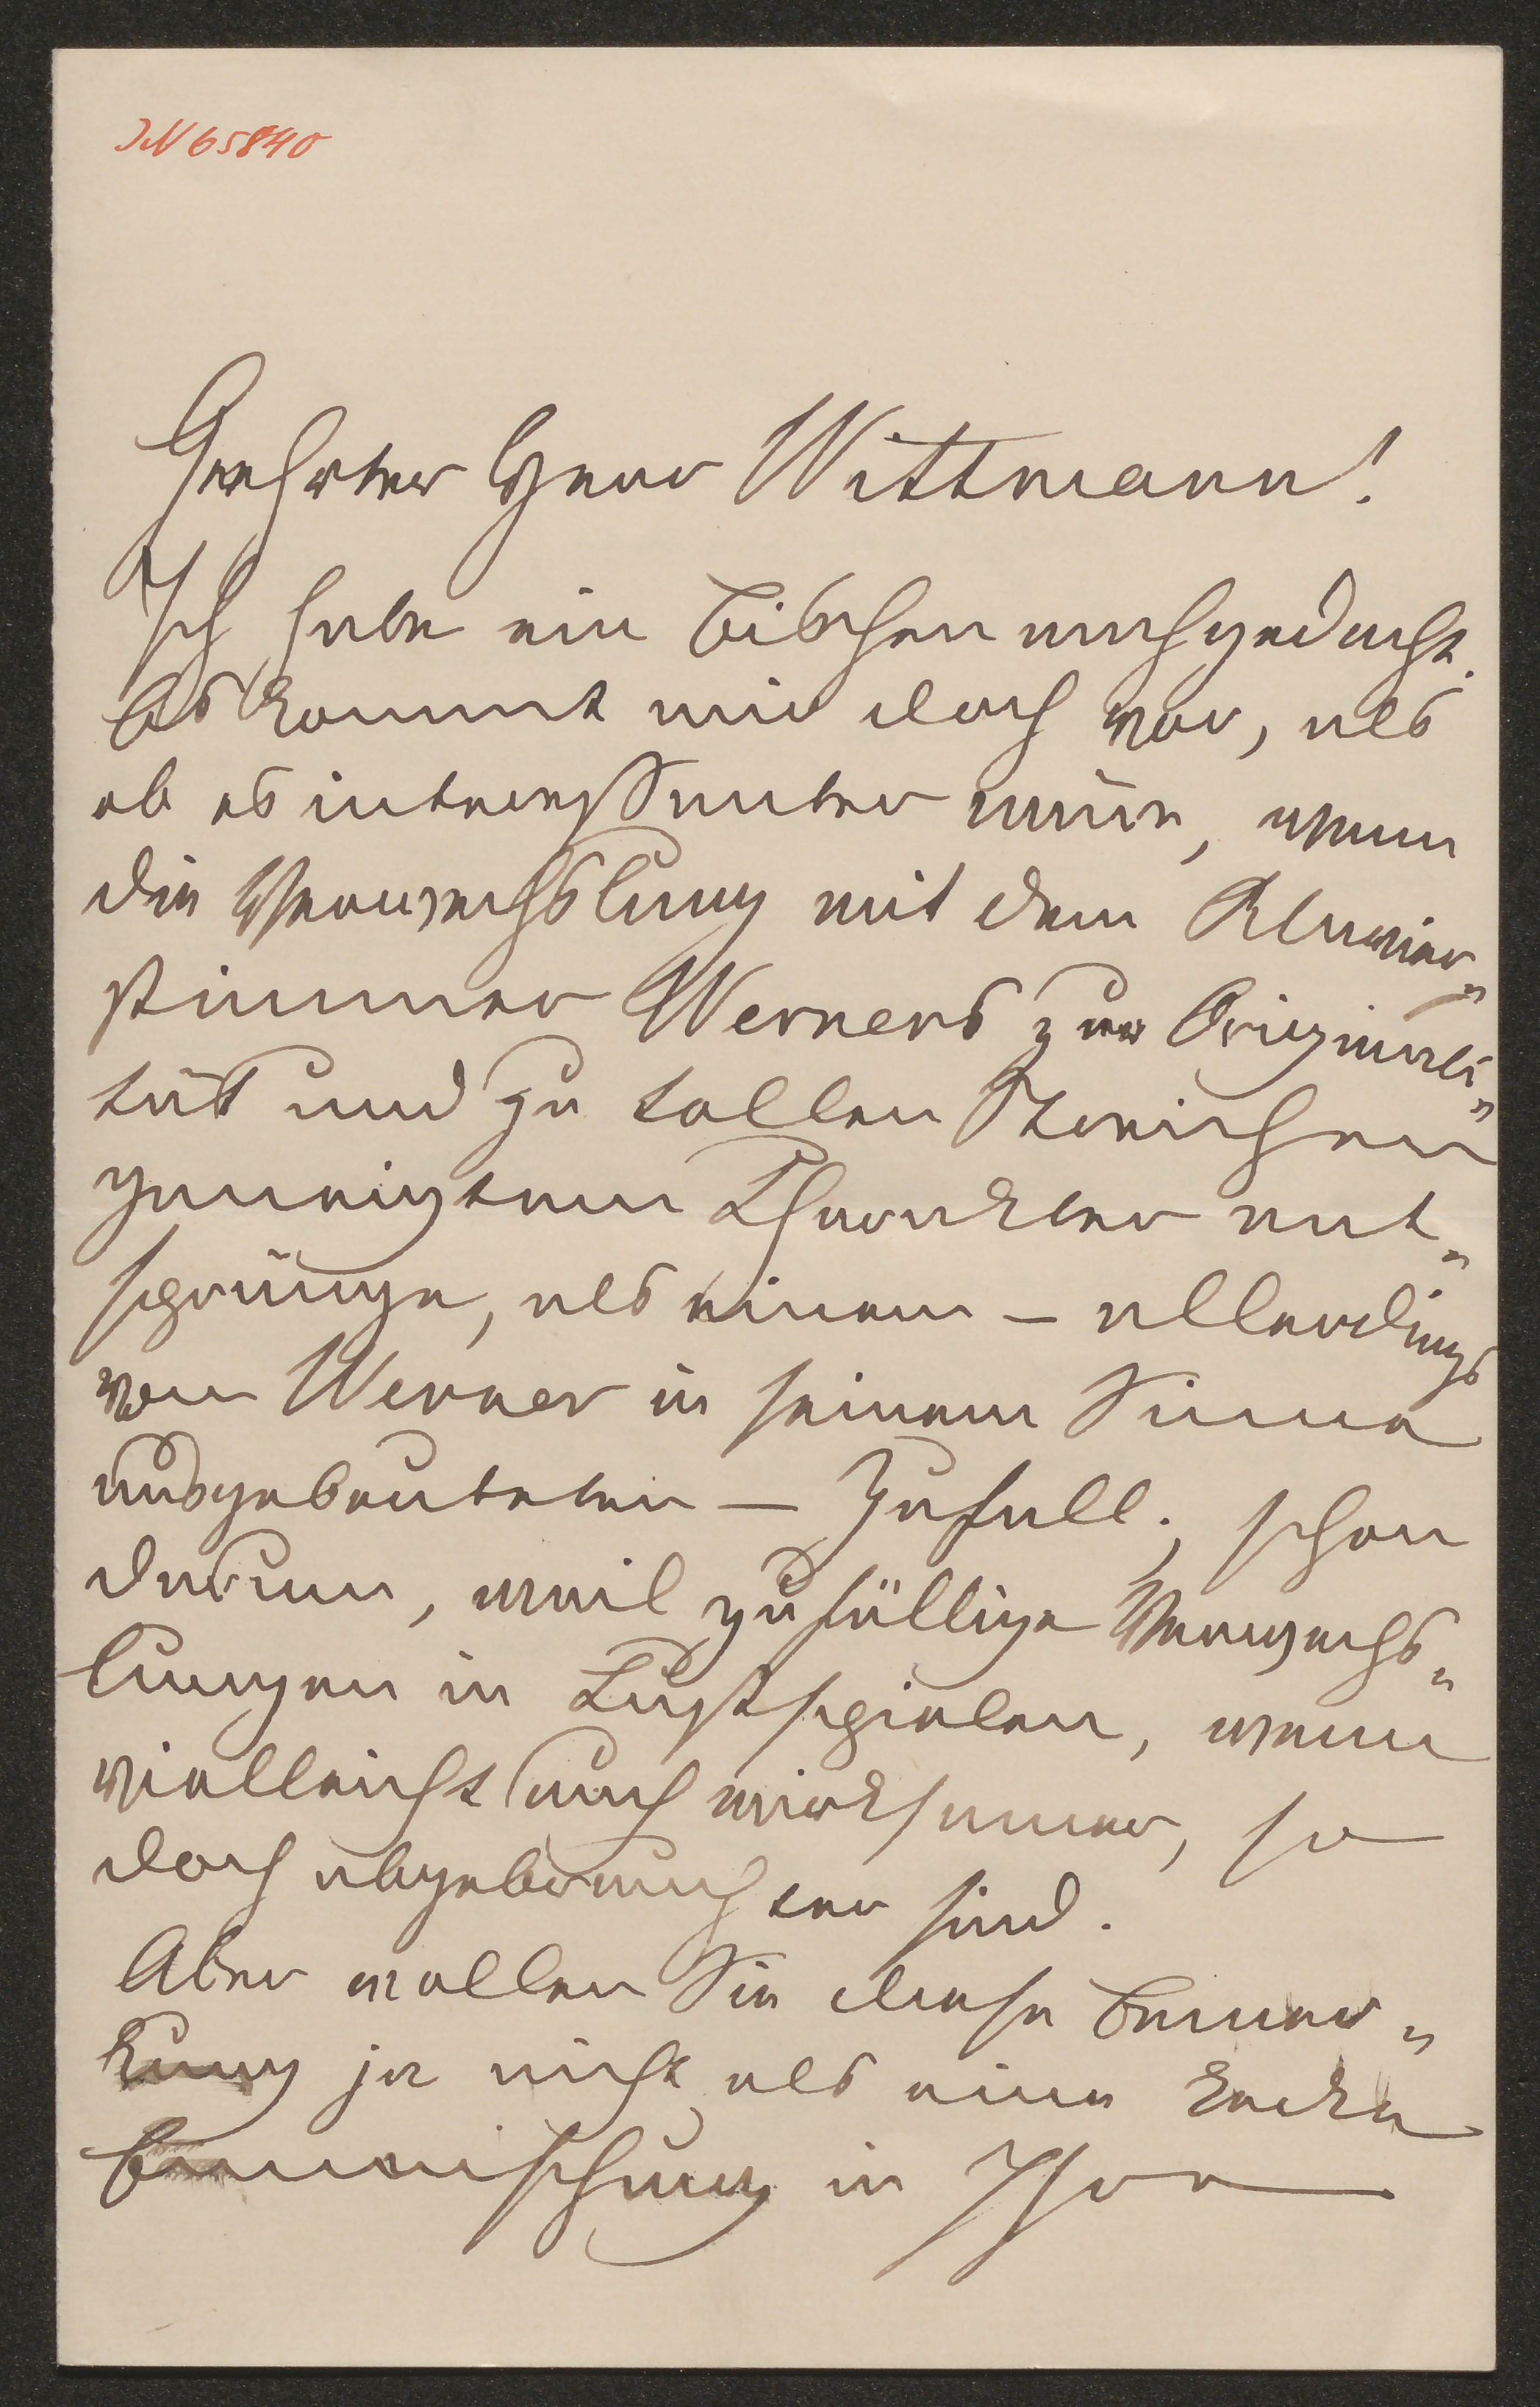 IN 65840
Geehrter Herr Wittmann!
Ich habe ein bischen nachgedacht.
Es kommt mir doch vor, als
ob es interessanter wäre, wenn
die Verwechslung mit dem Klavier„
stimmer Werners zur Originali„
tät und zu tollen Streichen
geneigtem Charakter ent„
spränge, als einem – allerdings
von Werner in seinem Sinne
ausgebeuteten – Zufall; schon
darum, weil zufällige Verwechs„
lungen in Lustspielen, wenn
vielleicht auch wirksamer, so
doch abgebrauchter sind.
Aber wollen Sie diese Bemer„
kung ja nicht als eine kecke
Einmischung in Ihre